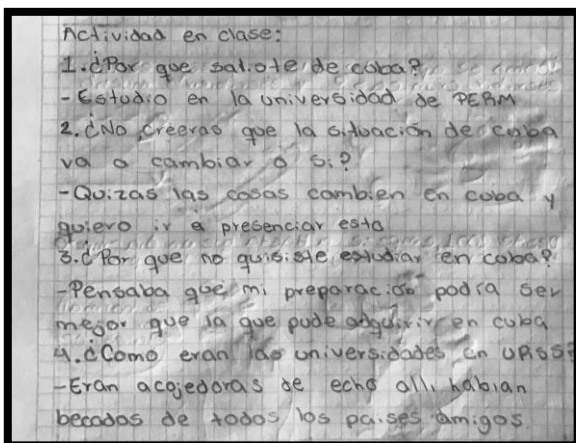 Actividad en clase:
1. ¿Por que saliste de cuba?
- Estudio en la universidad de PERM
2. ¿No creeras que la situación de cuba
va a cambiar o si?
- Quizas las cosas cambien en cuba y
quiero ir a presenciar esto
3. ¿Por que no quisiste estudiar en cuba?
- Pensaba que mi preparación podía ser
mejor que la que pude adquirir en cuba
4. ¿Como eran las universidades en URSS?
- Eran acojedoras de echo alli habian
becados de todos los paises amigos.